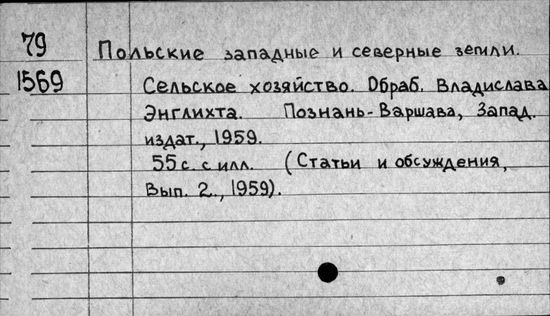 79
1569
Польские западные и северные земли.
Сельское хозяйство. Обраб. Владислава
Энглихта. Познань-Варшава, Запад.
издат., 1959.
55 с. с илл. (Статьи и обсуждения,
Вып. 2., 1959).